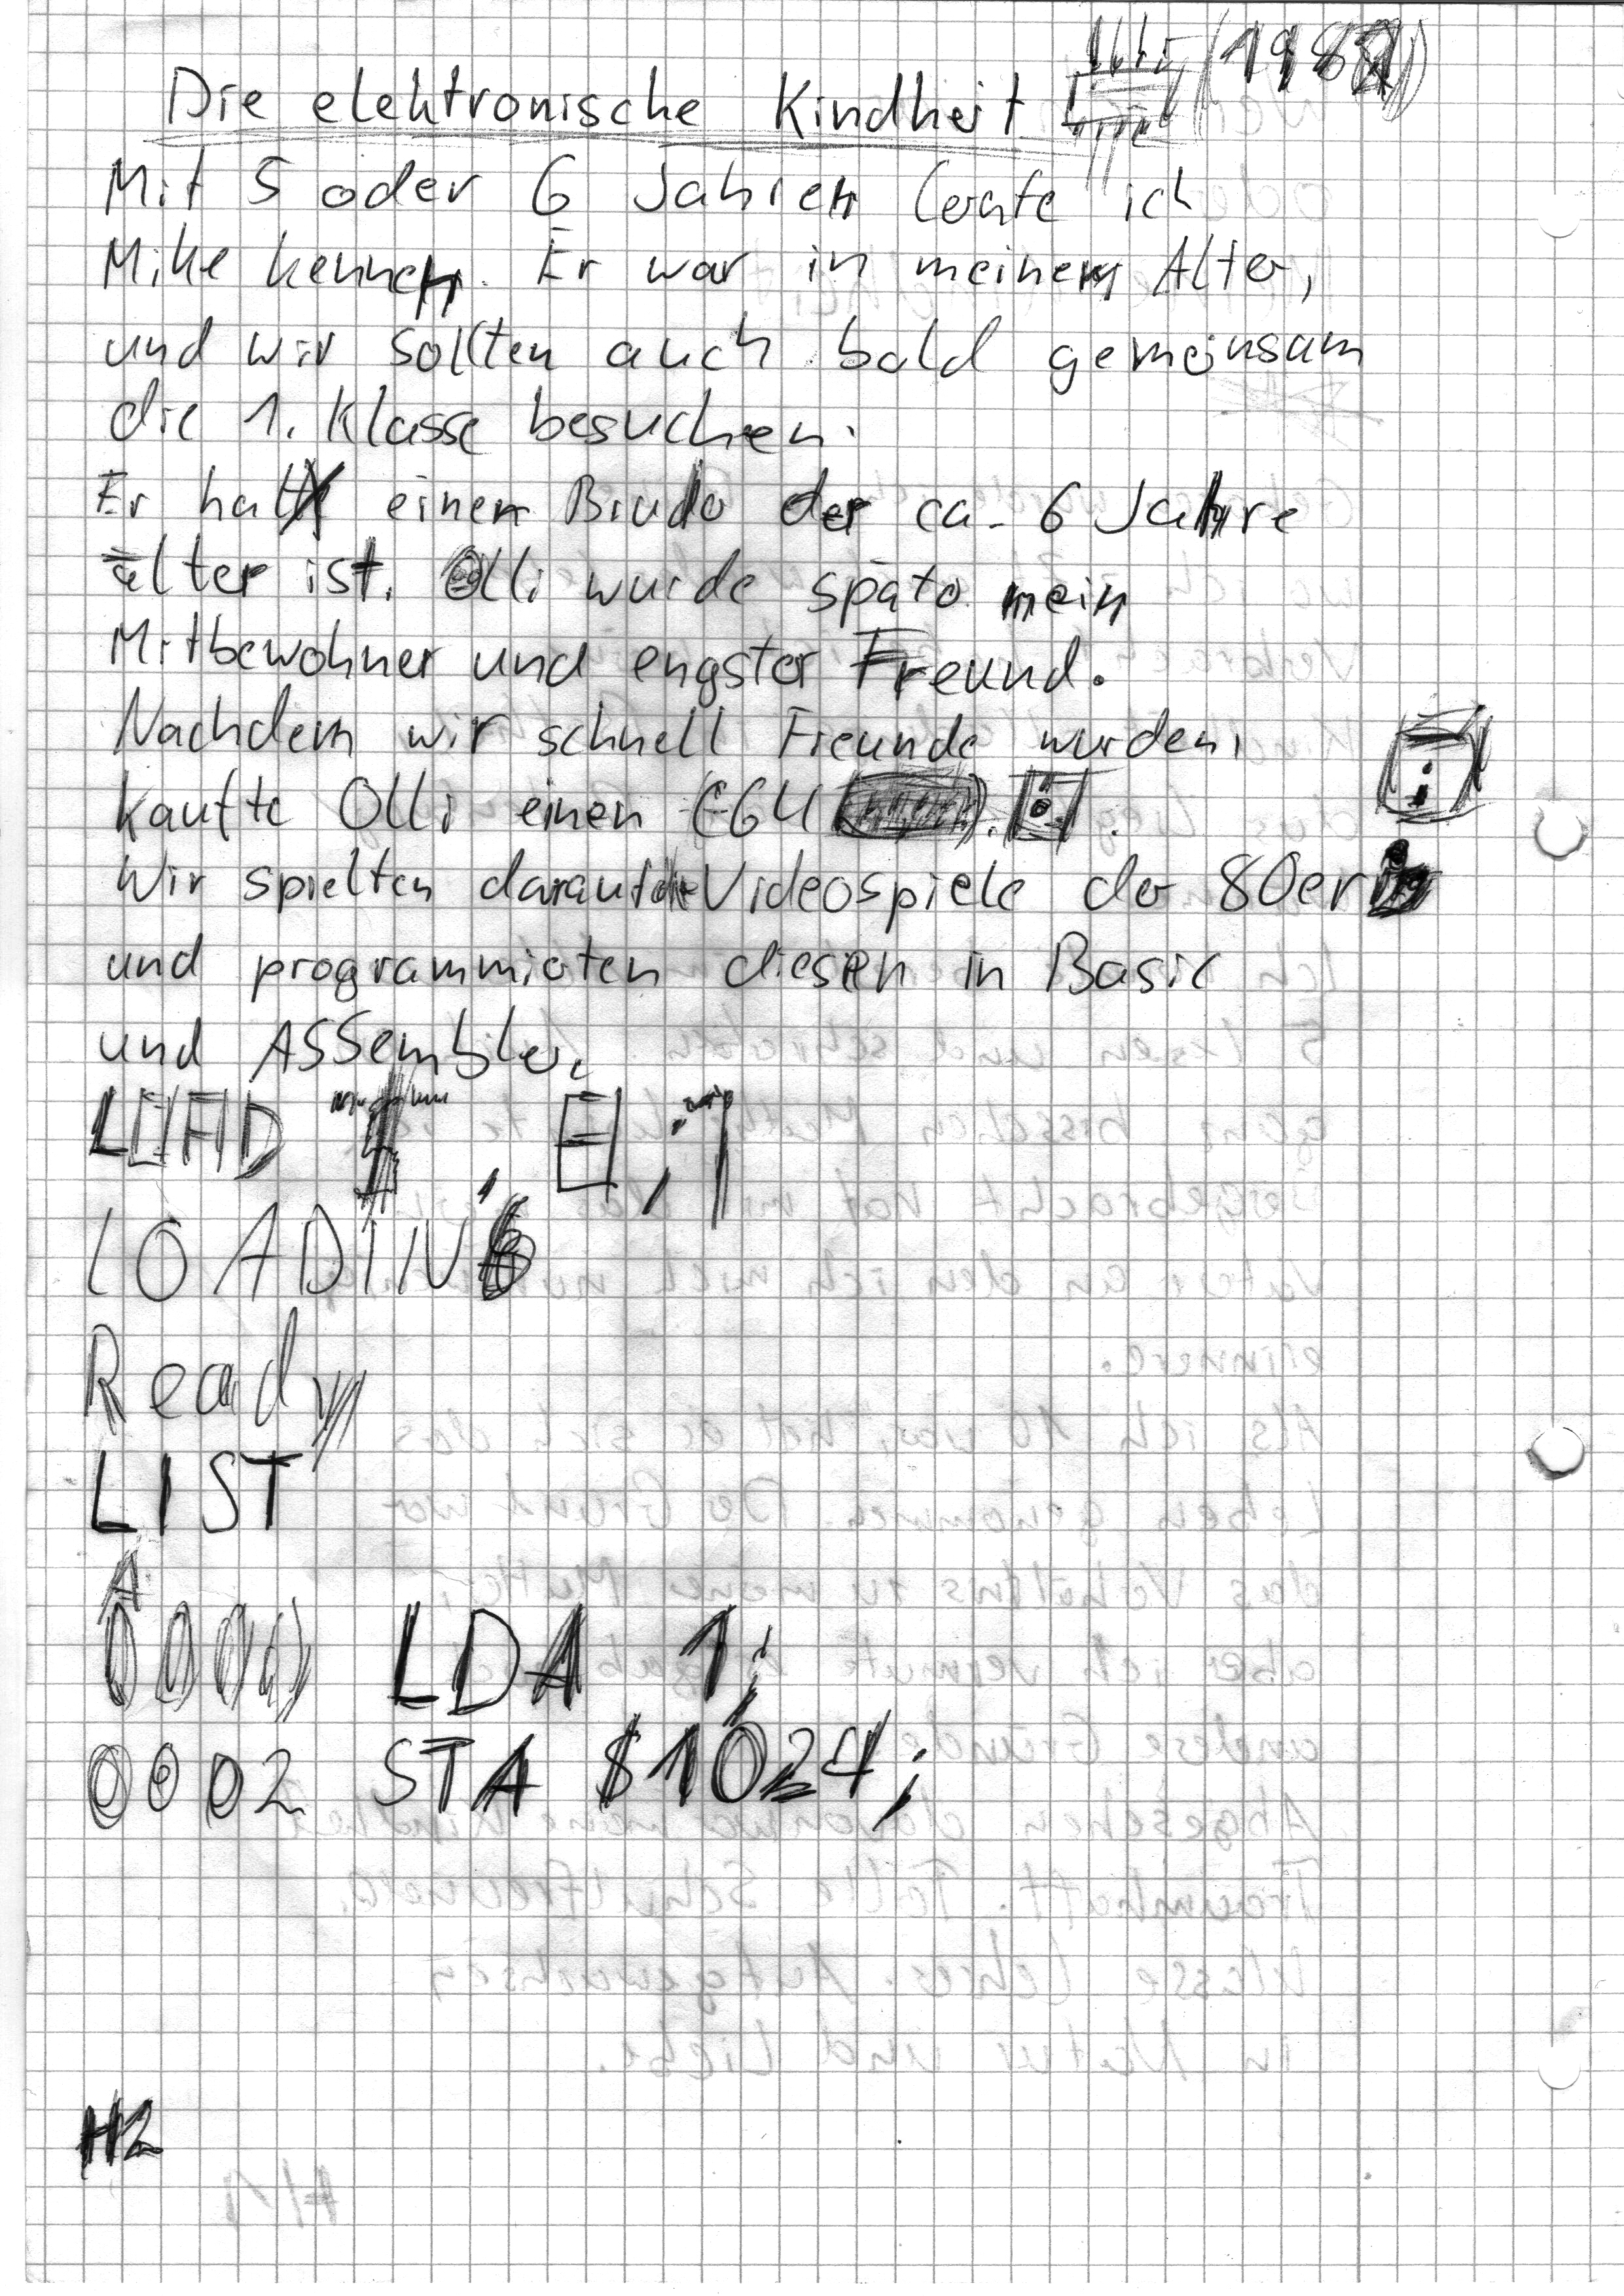 Die elektronische Kindheit (1982)
Mit 5 oder 6 Jahren lernte ich
Mike kennen. Er war in meinem Alter,
und wir sollten auch bald gemeinsam
die 1. Klasse besuchen.
Er hat einen Bruder der ca. 6 Jahre
älter ist. Olli wurde später mein
Mitbewohner und engster Freund.
Nachdem wir schnell Freunde wurden,
kaufte Olli einen C64
Wir spielten darauf die Videospiele der 80er
und programmierten diesen in Basic
und ASSembler.
LOAD
LOADING
Ready
LIST
LDA 1;
0002 STA $1024;
H2